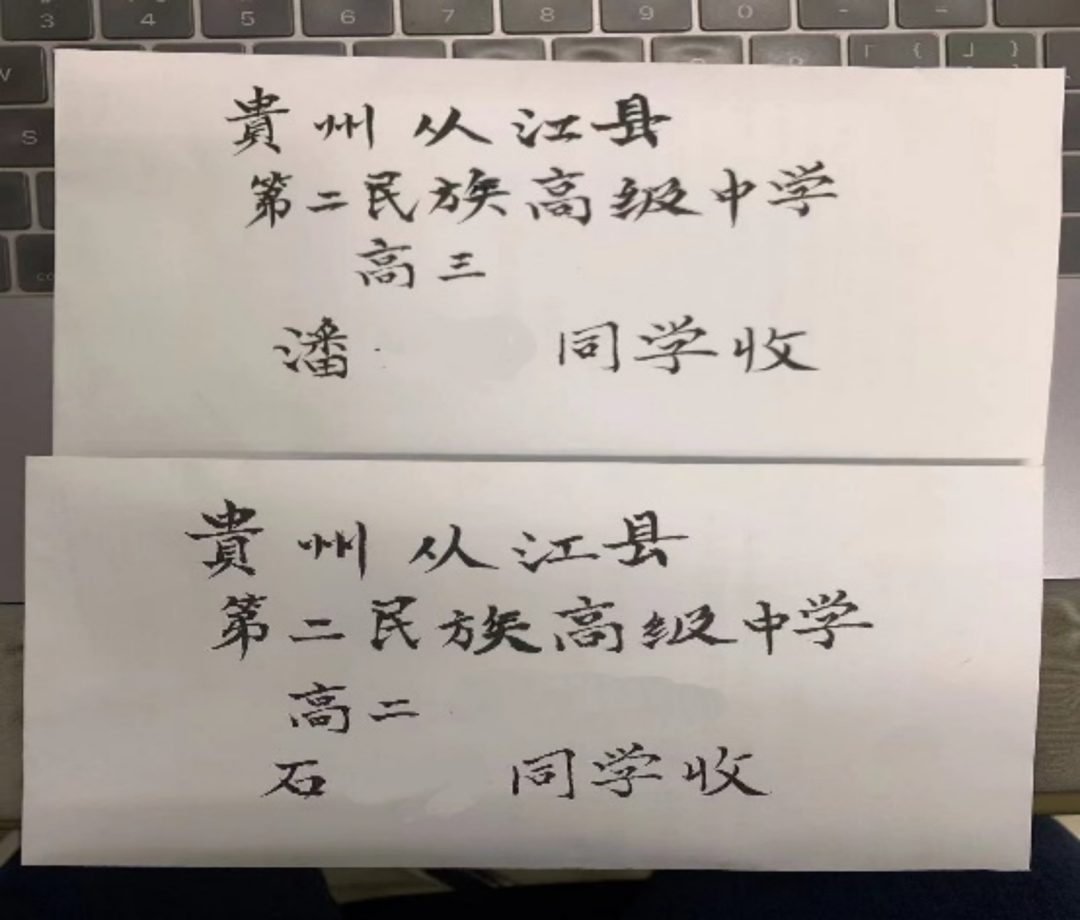 3 4 5 6 7 8 9 0 - =
W 「 { 」 }
S
貴州从江县
第二民族高级中学
高三
潘 同学收
貴州从江县
第二民族高级中学
高二
石 同学收